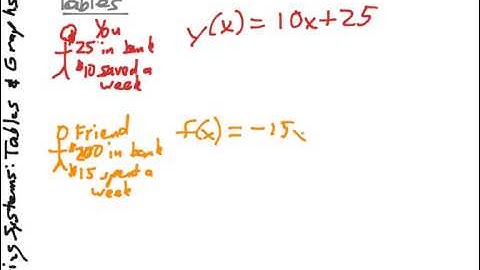 Tables
You
$25 in bank
$10 saved a
week
y(x) = 10x+25
Friend
$200 in bank
$15 spent a
week
f(x) = -15x
ing Systems: Tables & Graphs